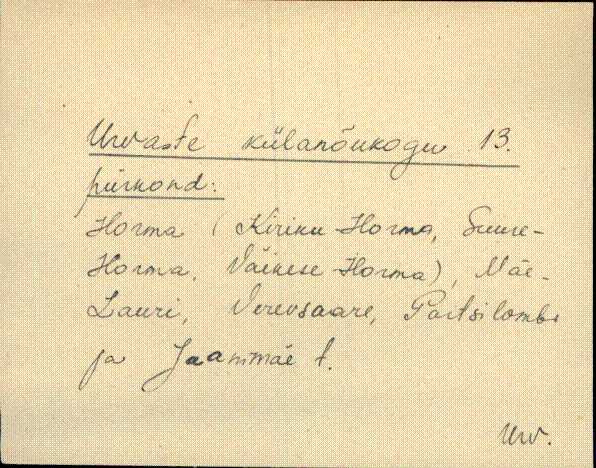 Urvaste külanõukogu 13.
piirkond:
Horma (Kiriku-Horma, Suure-
Horma, Väikese-Horma), Mäe-
Lauri, Verevsaare, Partsilombi
ja Jaanimäe t.
Urv.